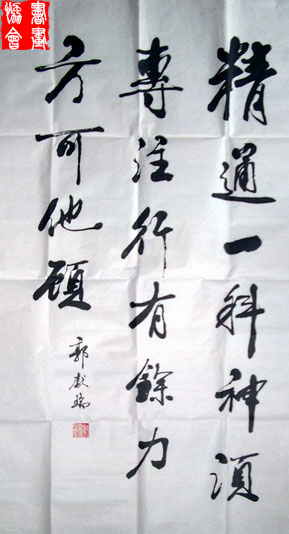 精通一科神须
專注行有餘力
方可他顧
郭獻瑞
書畫
協會